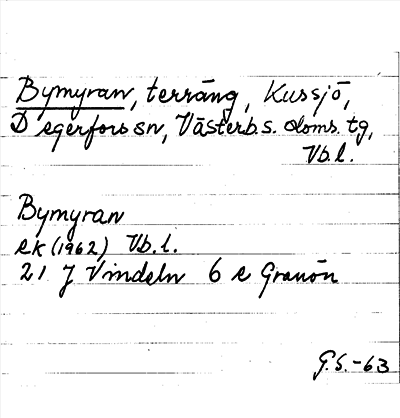 Bymyran, terräng, Kussjö,
Degerfors sn, Västerb.s. doms. tg,
Vb.l.
Bymyran
ek (1962) Vb.l.
21 J Vindeln 6 e Granön
G.S.-63